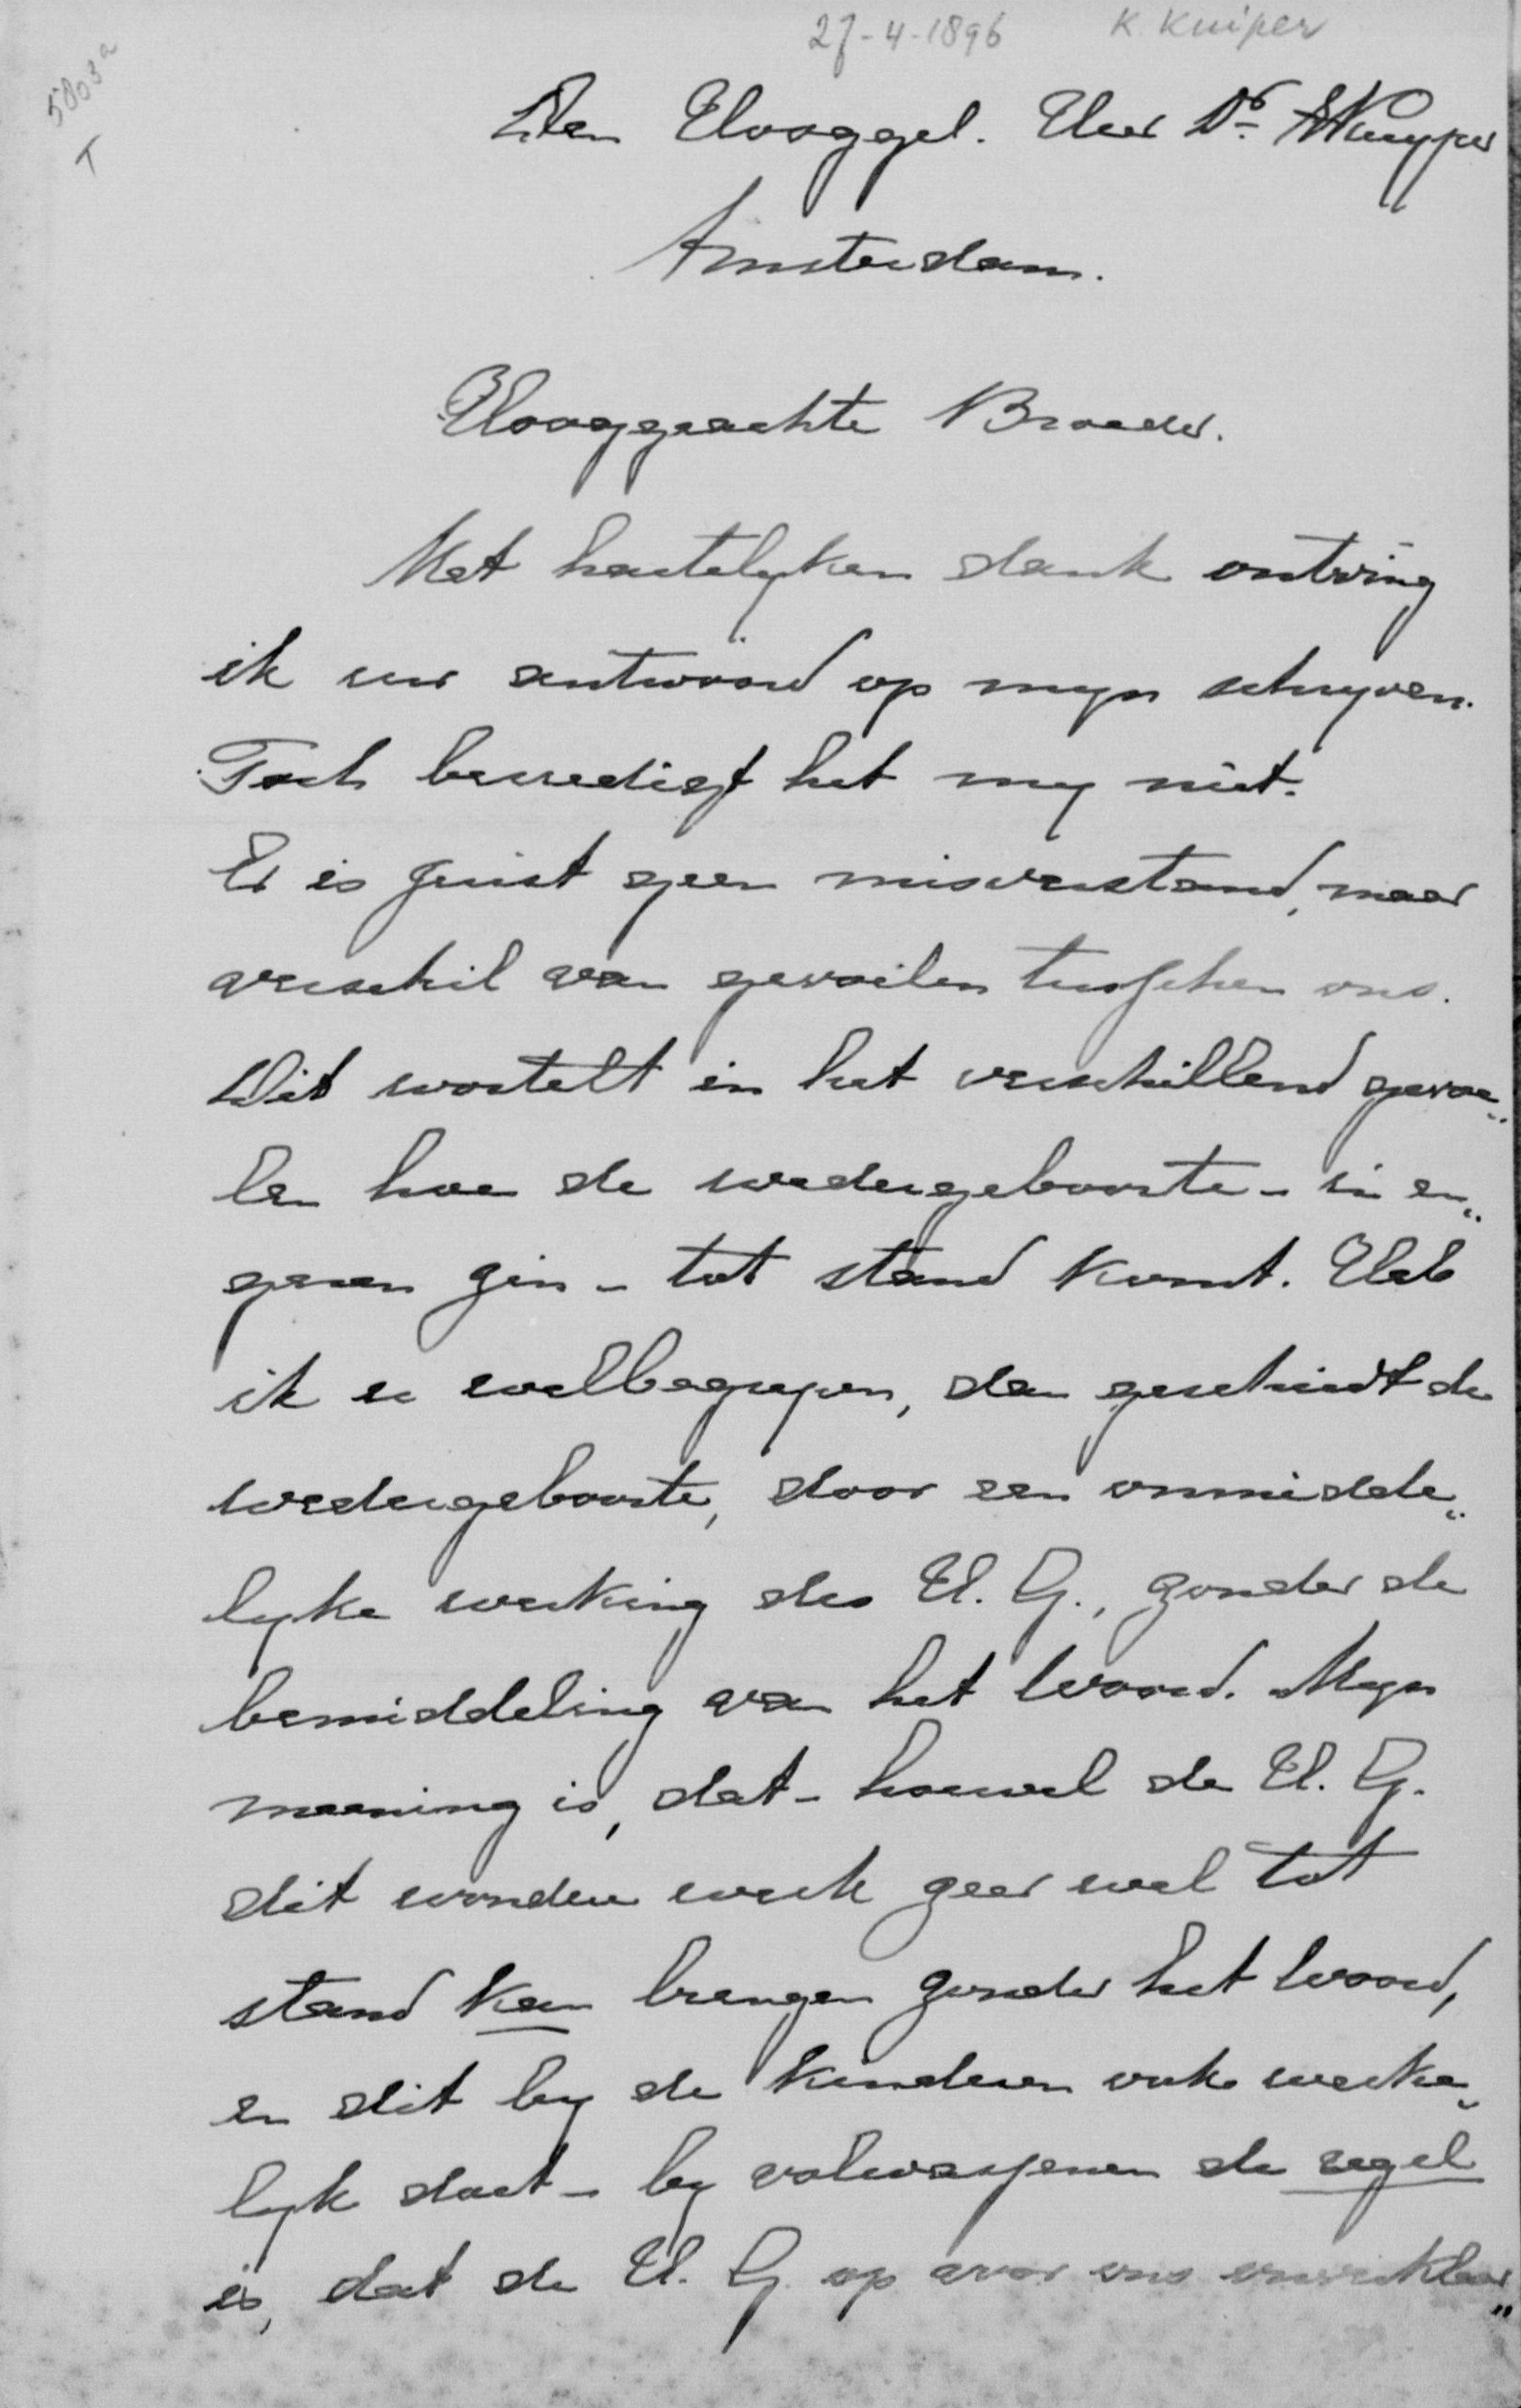 27-4-1896 K. Kuiper
5803a
T
Den Hooggel. Heer Dr. A Kuyper
Amsterdam.
Hooggeachte Broeder.
Met hartelyken dank ontving
ik uw antwoord op myn schryven.
Toch bevredigt het my niet.
Er is juist geen misverstand, maar
verschil van gevoelen tusschen ons.
Dit wortelt in het verschillend gevoe„
len hoe de wedergeboorte - in en„
geren zin - tot stand komt. Heb
ik u welbegrepen, dan geschiedt de
wedergeboorte, door een onmidde„
lyke werking des H. G., zonder de
bemiddeling van het Woord. Myn
meening is, dat - hoewel de H. G.
dit wonderwerk zeer wel tot
stand kan brengen zonder het Woord,
en dit by de kinderen ook werke„
lyk doet - by volwassenen de regel
is, dat de H. G. op voor ons onverklaar„